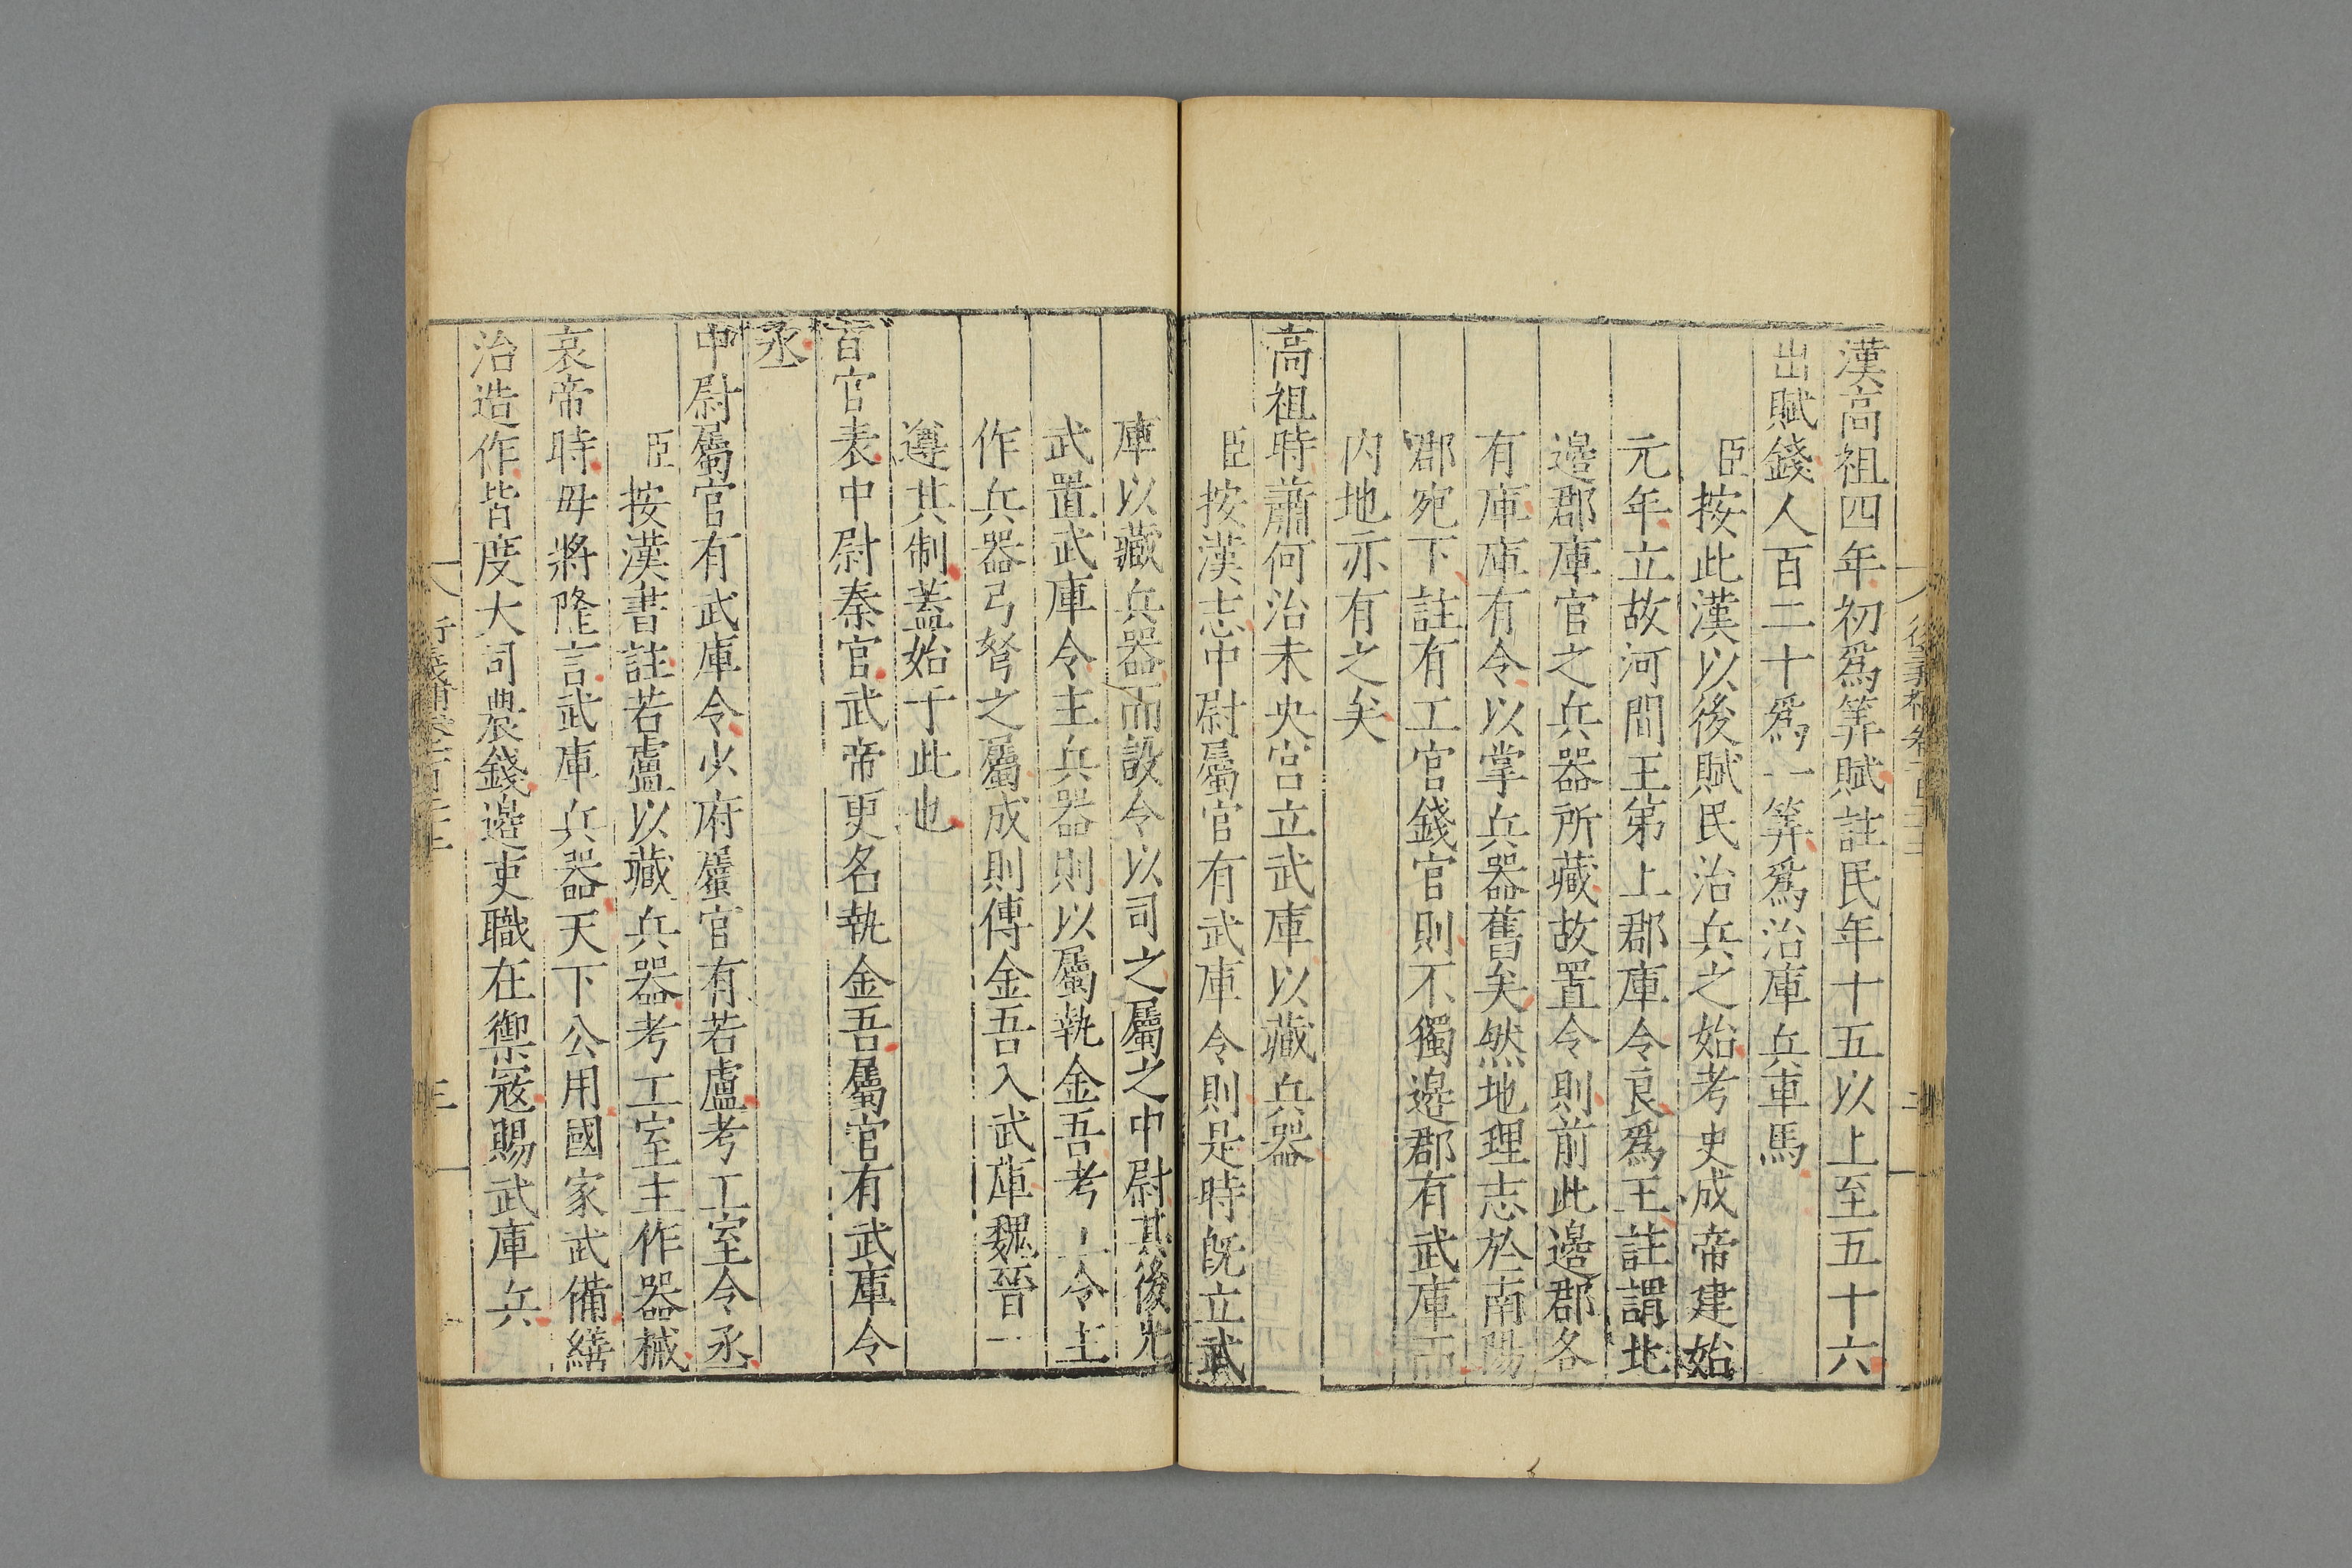 漢高祖四年初爲筭賦註民年十五以上至五十六
出賦錢人百二十爲一筭爲治庫兵車馬
臣按此漢以後賦民治兵之始考史成帝建始
元年立故河間王第上郡庫令良爲王註謂北
邊郡庫官之兵器所藏故置令則前此邊郡各
有庫庫有令以掌兵器舊矣然地理志於南陽
郡宛下註有工官錢官則不獨邊郡有武庫而
内地亦有之矣
高祖時蕭何治未央宫立武庫以藏兵器
臣按漢志中尉屬官有武庫令則是時旣立武
庫以藏兵器而設令以司之屬之中尉其後光
武置武庫令主兵器則以屬執金吾考工令主
作兵器弓弩之屬成則傳金吾入武庫魏晉一
遵其制蓋始于此也
百官表中尉秦官武帝更名執金吾屬官有武庫令
丞
中尉屬官有武庫令少府屬官有若盧考工室令丞
臣按漢書註若盧以藏兵器考工室主作器械
哀帝時毋將隆言武庫兵器天下公用國家武備繕
治造作皆度大司農錢邊吏職在禦寇賜武庫兵